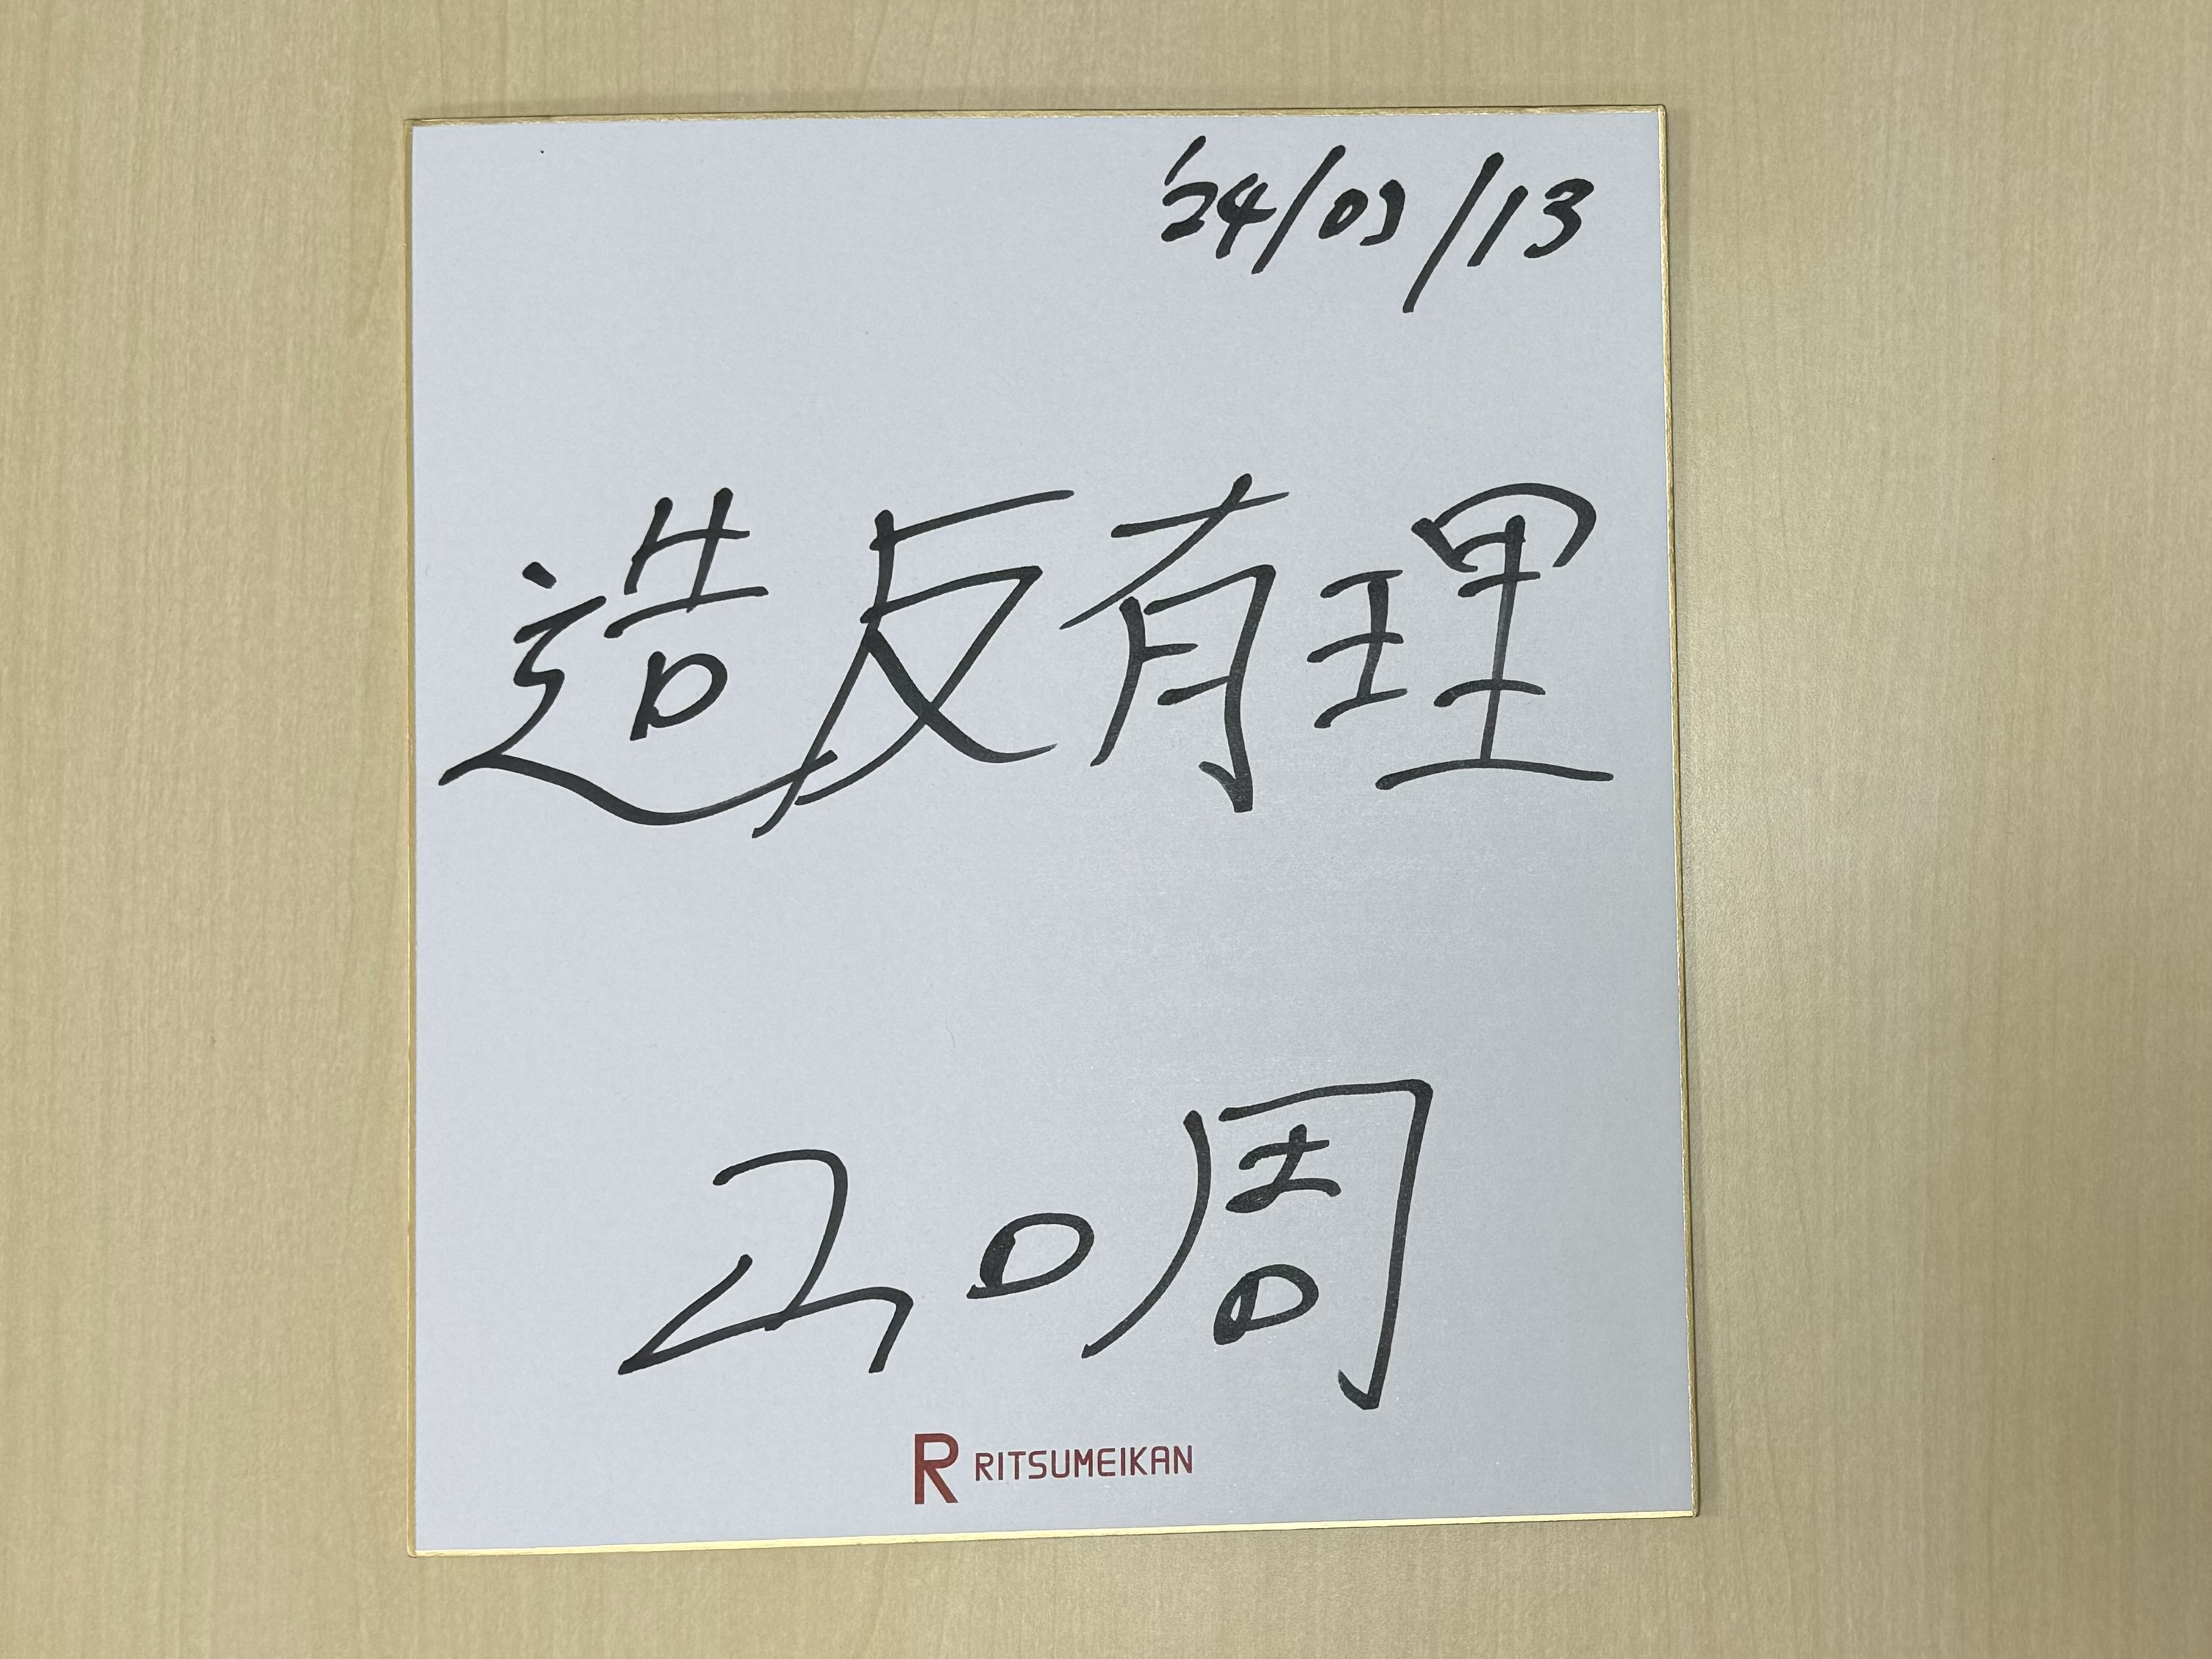 '24/03/13
造反有理
山口周
R RITSUMEIKAN